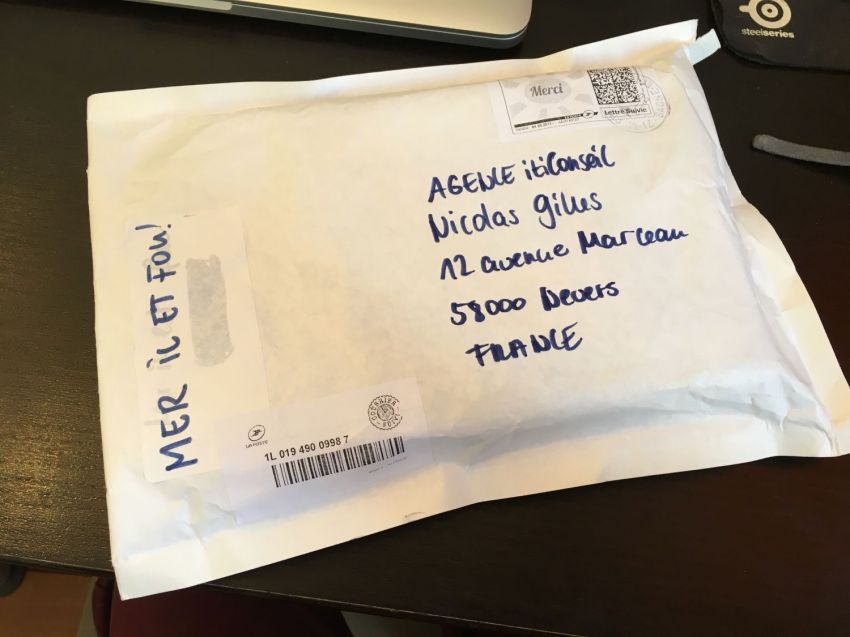 steelseries
Merci
Lettre Suivie
AGENCE itiConseil
Nicolas Gilles
12 avenue Marceau
58000 Nevers
FRANCE
MER IL ET FOU!
LA POSTE
1L 019 490 0998 7